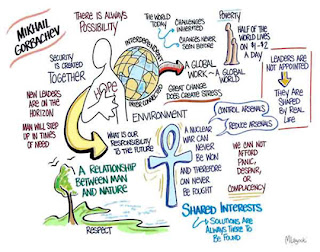 MIKHAIL
GORBACHEV
THERE IS ALWAYS
POSSIBILITY
SECURITY
IS CREATED
TOGETHER
NEW LEADERS
ARE ON THE
HORIZON
MAN WILL STEP
UP IN TIMES
OF NEED
HOPE
INTERDEPENDENT
INTERCONNECTED
THE WORLD
TODAY
CHALLENGES
INHERITED
CHANGES NEVER
SEEN BEFORE
POVERTY
HALF OF THE
WORLD LIVES
ON $1-$2
A DAY
A GLOBAL
WORK
A GLOBAL
WORLD
GREAT CHANGE
DOES CREATE STRESS
ENVIRONMENT
LEADERS ARE
NOT APPOINTED
THEY ARE
SHAPED BY
REAL
LIFE
CONTROL ARSENALS
REDUCE ARSENALS
WHAT IS OUR
RESPONSIBILITY
TO THE FUTURE
A NUCLEAR
WAR CAN
NEVER
BE WON
AND THEREFORE
CAN NEVER
BE FOUGHT
WE CAN NOT
AFFORD
PANIC,
DESPAIR,
OR
COMPLACENCY
A RELATIONSHIP
BETWEEN MAN
AND NATURE
RESPECT
SHARED INTERESTS
SOLUTIONS ARE
ALWAYS THERE TO
BE FOUND